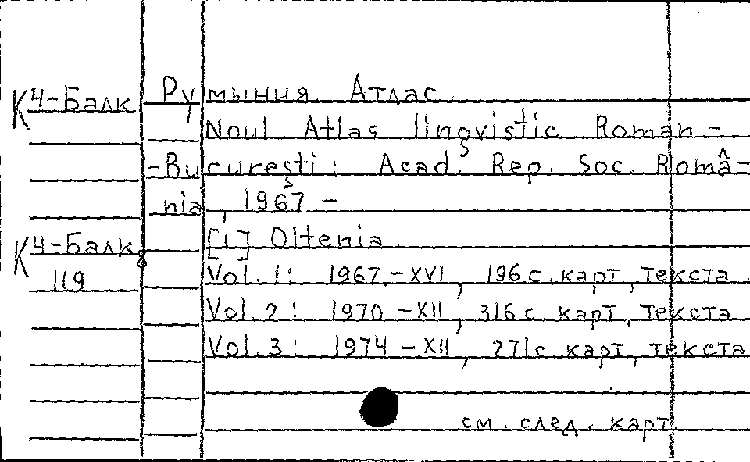 К Ч-Балк Румыния. Атлас.
Noul Atlas lingvistic Roman –
– Bucureşti: Acad. Rep. Soc. Româ–
nia, 1967 –
К Ч-Балк [1] Oltenia
119 Vol. 1: 1967.–XVI, 196 с. карт, текста.
Vol. 2: 1970 –XII, 316 с. карт, текста
Vol. 3: 1974 –XII, 271с. карт, текста
см. след. карт.